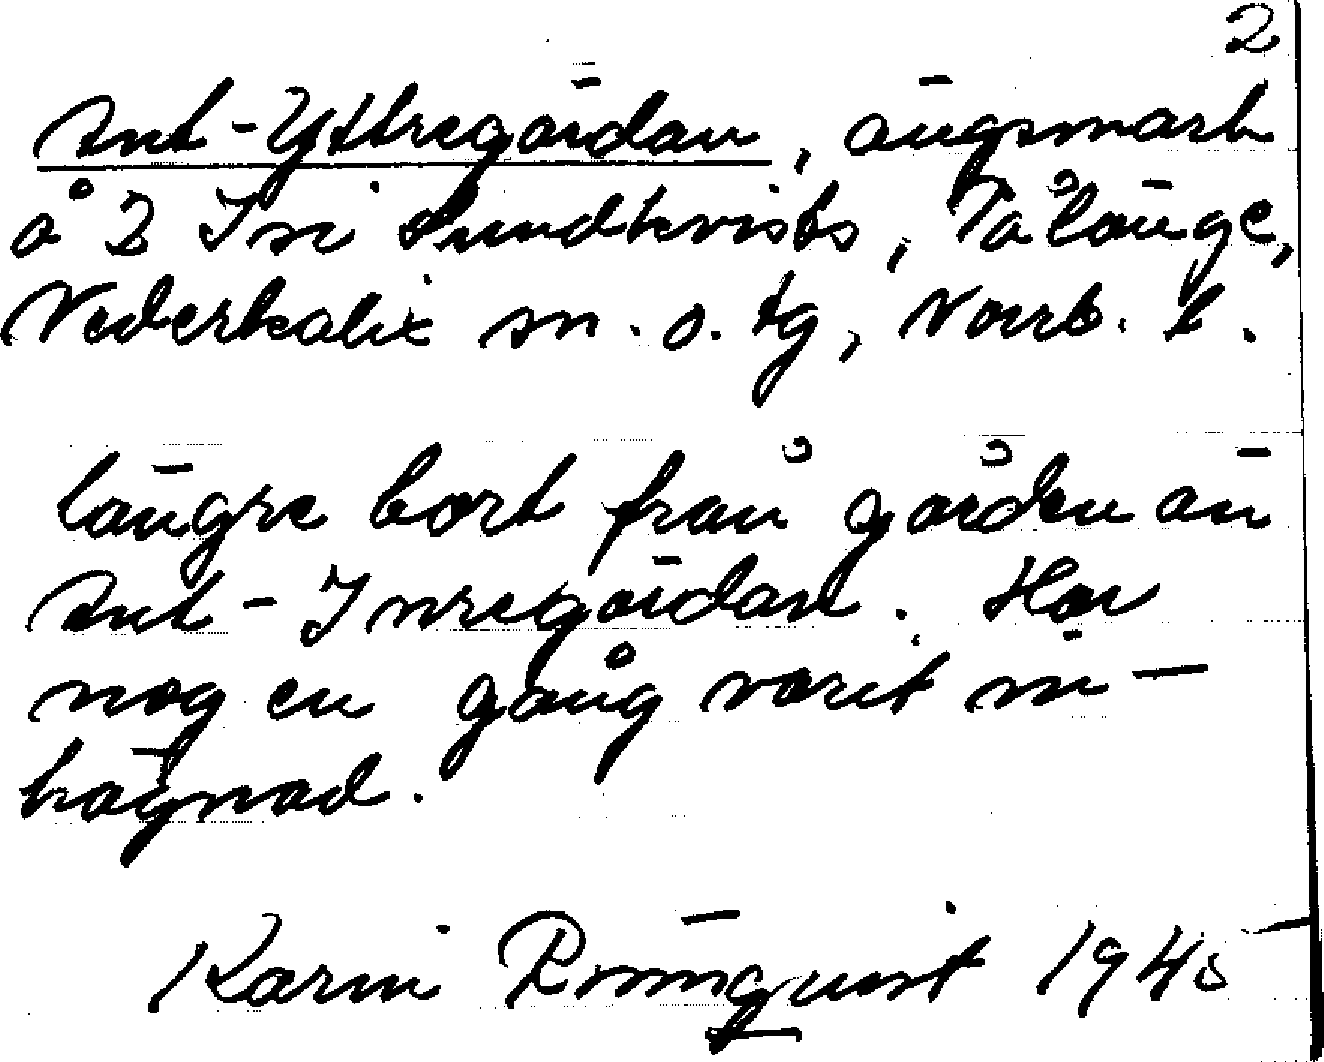 2
Ant-Yttregärdan, ängsmark
å 2 Isi Sundkvists, Pålänge,
Nederkalix sn. o. tg, Norrb. l.
längre bort från gården än
Ant-Inregärdan. Har
nog en gång varit in-
hägnad.
Karin Rönnquist 1945